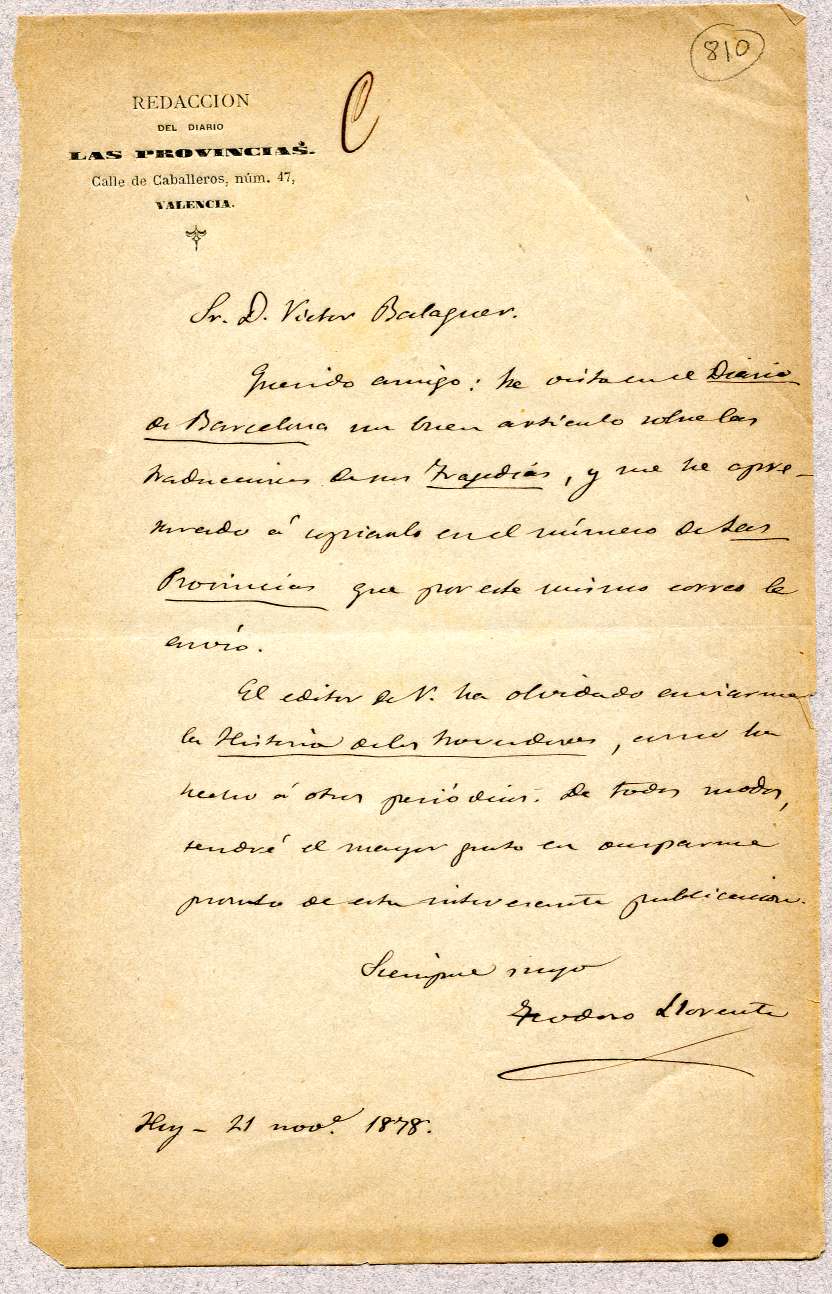 810
REDACCION
DEL DIARIO
LAS PROVINCIAS.
Calle de Caballeros, núm. 47,
VALENCIA.
C
Sr. D. Victor Balaguer.
Querido amigo: he visto en el Diario
de Barcelona un buen artículo sobre las
traducciones de sus Tragedias, y me he apre-
surado á copiarlo en el número de Las
Provincias que por este mismo correo le
envío.
El editor de V. ha olvidado enviarme
la Historia de los trovadores, como ha
hecho á otros periódicos. De todos modos,
tendré el mayor gusto en ocuparme
pronto de esta interesante publicacion.
Siempre suyo
Teodoro Llorente
Hoy - 21 novе. 1878.